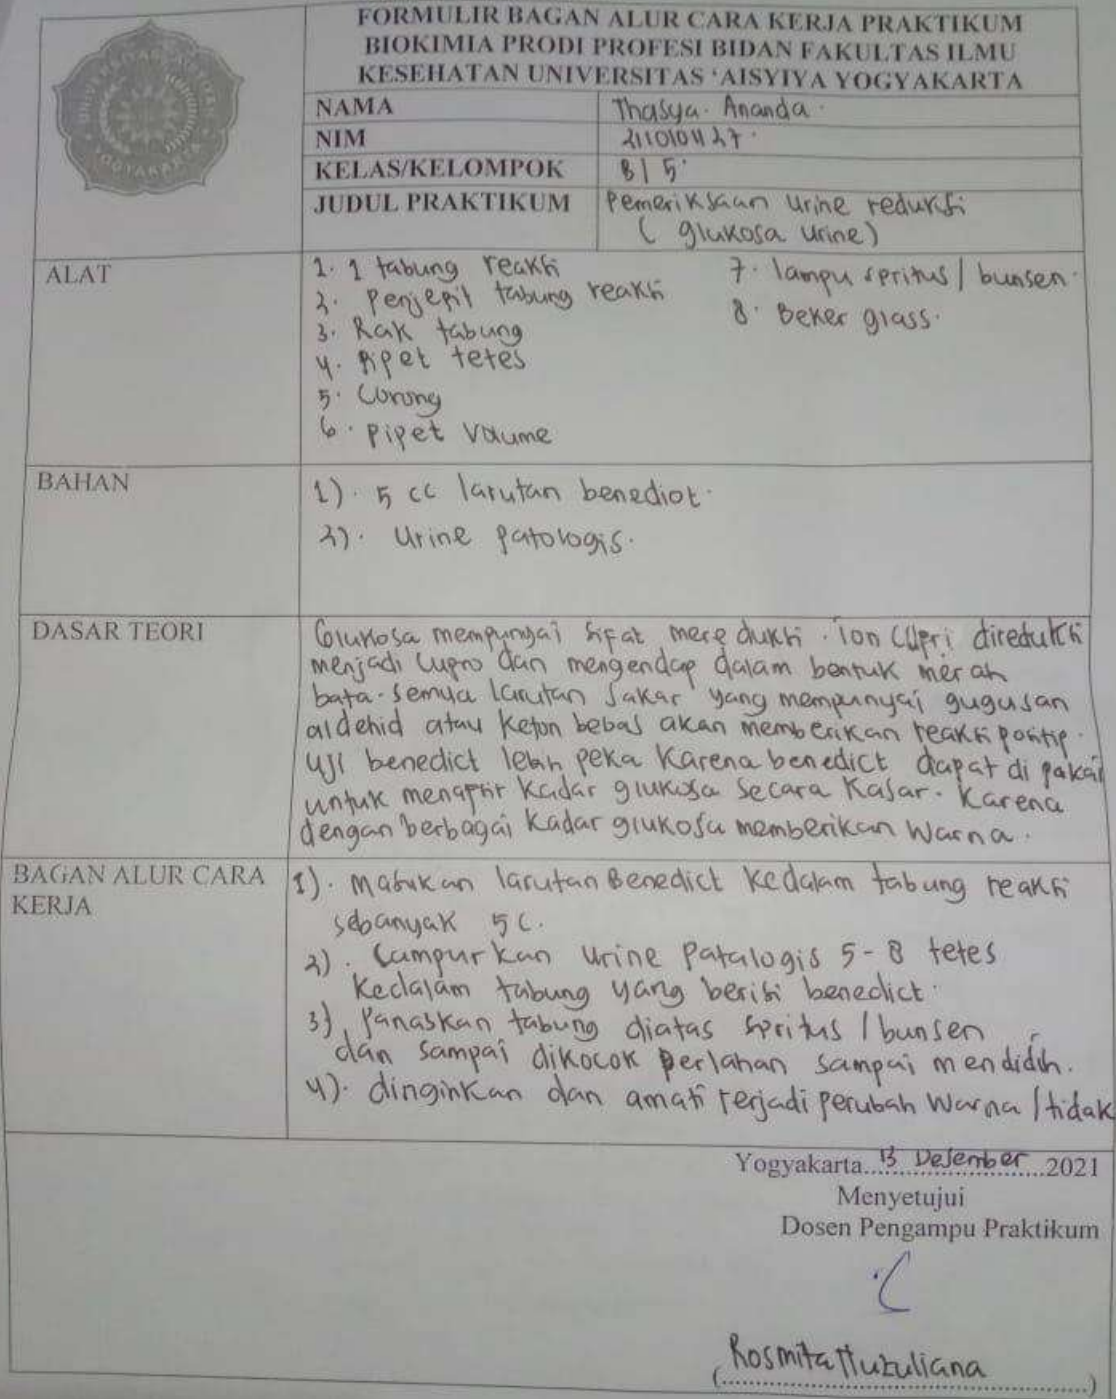 FORMULIR BAGAN ALUR CARA KERJA PRAKTIKUM
BIOKIMIA PRODI PROFESI BIDAN FAKULTAS ILMU
KESEHATAN UNIVERSITAS 'AISYIYA YOGYAKARTA
NAMA Thasya Ananda
NIM 2110101127
KELAS/KELOMPOK B/5
JUDUL PRAKTIKUM Pemeriksaan urine reduksi
(glukosa urine)
ALAT
1. 1 tabung reaksi
2. Penjepit tabung reaksi
3. Rak tabung
4. Pipet tetes
5. Corong
6. Pipet volume
7. lampu spritus / bunsen.
8. Beker glass.
BAHAN
1). 5 cc larutan benediot.
2). Urine patologis.
DASAR TEORI
Glukosa mempunyai sifat mereduksi. ion cupri direduksi
menjadi cupro dan mengendap dalam bentuk merah
bata. semua larutan sakar yang mempunyai gugusan
aldehid atau keton bebas akan memberikan reaksi positip.
Uji benedict lebih peka karena benedict dapat di pakai
untuk menapsir kadar glukosa secara kasar. karena
dengan berbagai kadar glukosa memberikan warna.
BAGAN ALUR CARA
KERJA
1). Masukan larutan Benedict kedalam tabung reaksi
sebanyak 5 C.
2). Campurkan urine Patalogis 5-8 tetes
kedalam tabung yang berisi benedict.
3). Panaskan tabung diatas spritus / bunsen
dan sampai dikocok perlahan sampai mendidih.
4). dinginkan dan amati terjadi perubah warna / tidak
Yogyakarta 13 Desember 2021
Menyetujui
Dosen Pengampu Praktikum
(Rosmita